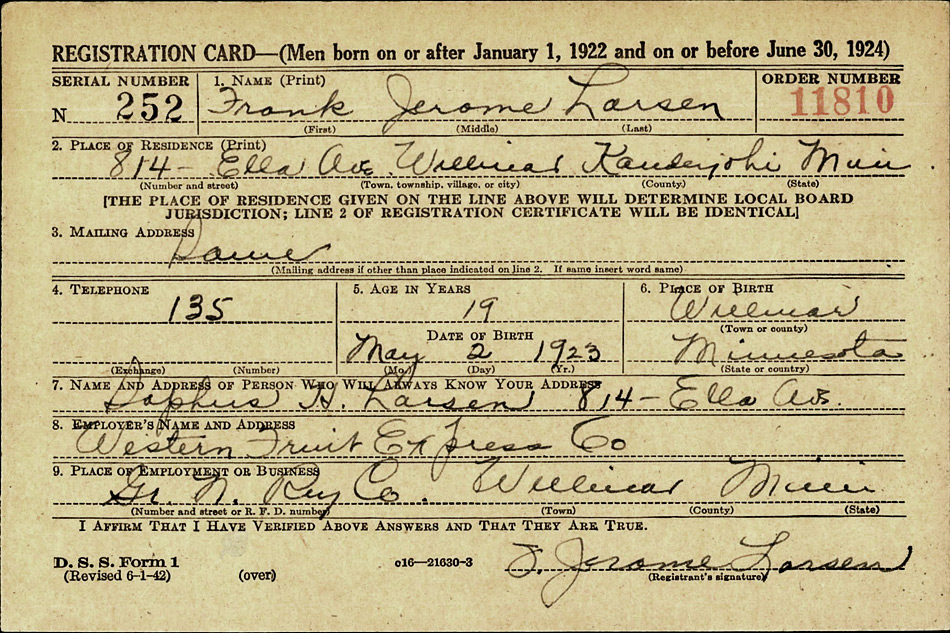 REGISTRATION CARD—(Men born on or after January 1, 1922 and on or before June 30, 1924)
SERIAL NUMBER 1. NAME (Print) ORDER NUMBER
N 252 Frank Jerome Larsen 11810
(First) (Middle) (Last)
2. PLACE OF RESIDENCE (Print)
814- Ella Ave. Willmar Kandiyohi Minn
(Number and street) (Town, township, village, or city) (County) (State)
[THE PLACE OF RESIDENCE GIVEN ON THE LINE ABOVE WILL DETERMINE LOCAL BOARD
JURISDICTION; LINE 2 OF REGISTRATION CERTIFICATE WILL BE IDENTICAL]
3. MAILING ADDRESS
Same
(Mailing address if other than place indicated on line 2. If same insert word same)
4. TELEPHONE 5. AGE IN YEARS 6. PLACE OF BIRTH
135 19 Willmar
(Town or county)
DATE OF BIRTH
May 2 1923 Minnesota
(Exchange) (Number) (Mo.) (Day) (Yr.) (State or country)
7. NAME AND ADDRESS OF PERSON WHO WILL ALWAYS KNOW YOUR ADDRESS
Sophus H. Larsen 814- Ella Ave.
8. EMPLOYER'S NAME AND ADDRESS
Western Fruit Express Co
9. PLACE OF EMPLOYMENT OR BUSINESS
Gr. N. Ry Co. Willmar Minn
(Number and street or R. F. D. number) (Town) (County) (State)
I AFFIRM THAT I HAVE VERIFIED ABOVE ANSWERS AND THAT THEY ARE TRUE.
D. S. S. Form 1
(Revised 6-1-42) (over) c16—21630-3 F. Jerome Larsen
(Registrant's signature)